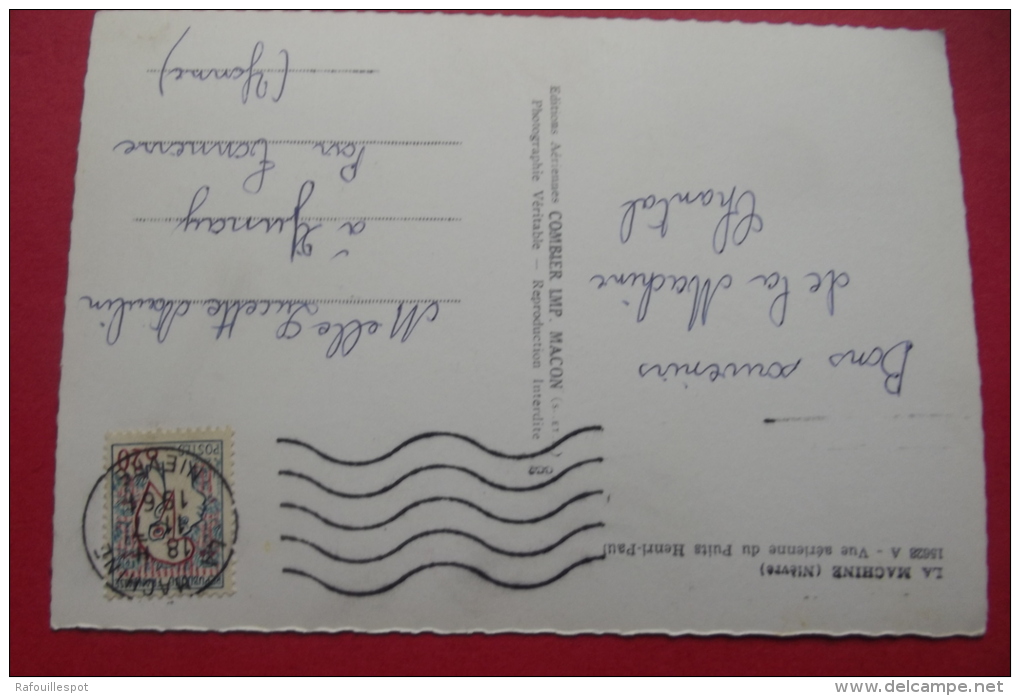 LA MACHINE (Nièvre)
15628 A - Vue aérienne du Puits Henri-Paul
Bons souvenirs
de la Machine
Chantal
Editions Aériennes COMBIER IMP. MACON
Photographie Véritable — Reproduction Interdite
LA MACHINE
18 H
11
1961
NIEVRE
POSTES
0,20
Melle Lucette Moulin
à Junay
Par Tonnerre
(Yonne)
Rafouillespot
www.delcampe.net